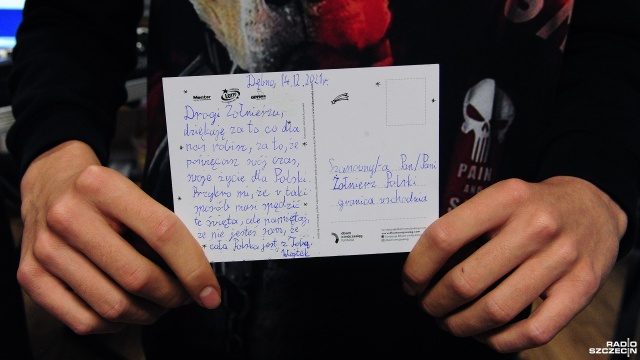 Dębno, 14.12.2021r.
Drogi Żołnierzu,
dziękuję za to co dla
nas robisz, za to, że
poświęcasz swój czas,
swoje życie dla Polski.
Przykro mi, że w taki
sposób masz spędzić
te święta, ale pamiętaj,
że nie jesteś sam, że
cała Polska jest z Tobą.
Szanowny/a Pan/Pani
Żołnierz Polski
granica wschodnia
PAIN
AND
RADIO
SZCZECIN